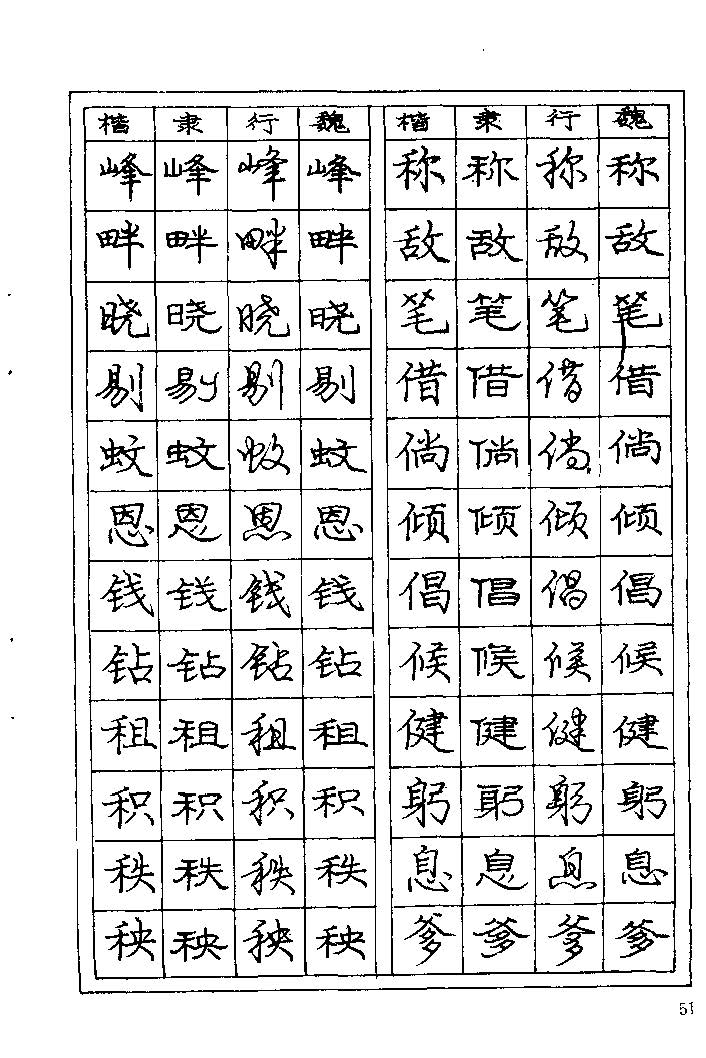 楷 隶 行 魏 楷 隶 行 魏
峰 峰 峰 峰 称 称 称 称
畔 畔 畔 畔 敌 敌 敌 敌
晓 晓 晓 晓 笔 笔 笔 笔
剔 剔 剔 剔 借 借 借 借
蚊 蚊 蚊 蚊 倘 倘 倘 倘
恩 恩 恩 恩 倾 倾 倾 倾
钱 钱 钱 钱 倡 倡 倡 倡
钻 钻 钻 钻 候 候 候 候
租 租 租 租 健 健 健 健
积 积 积 积 躬 躬 躬 躬
秩 秩 秩 秩 息 息 息 息
秧 秧 秧 秧 爹 爹 爹 爹
51